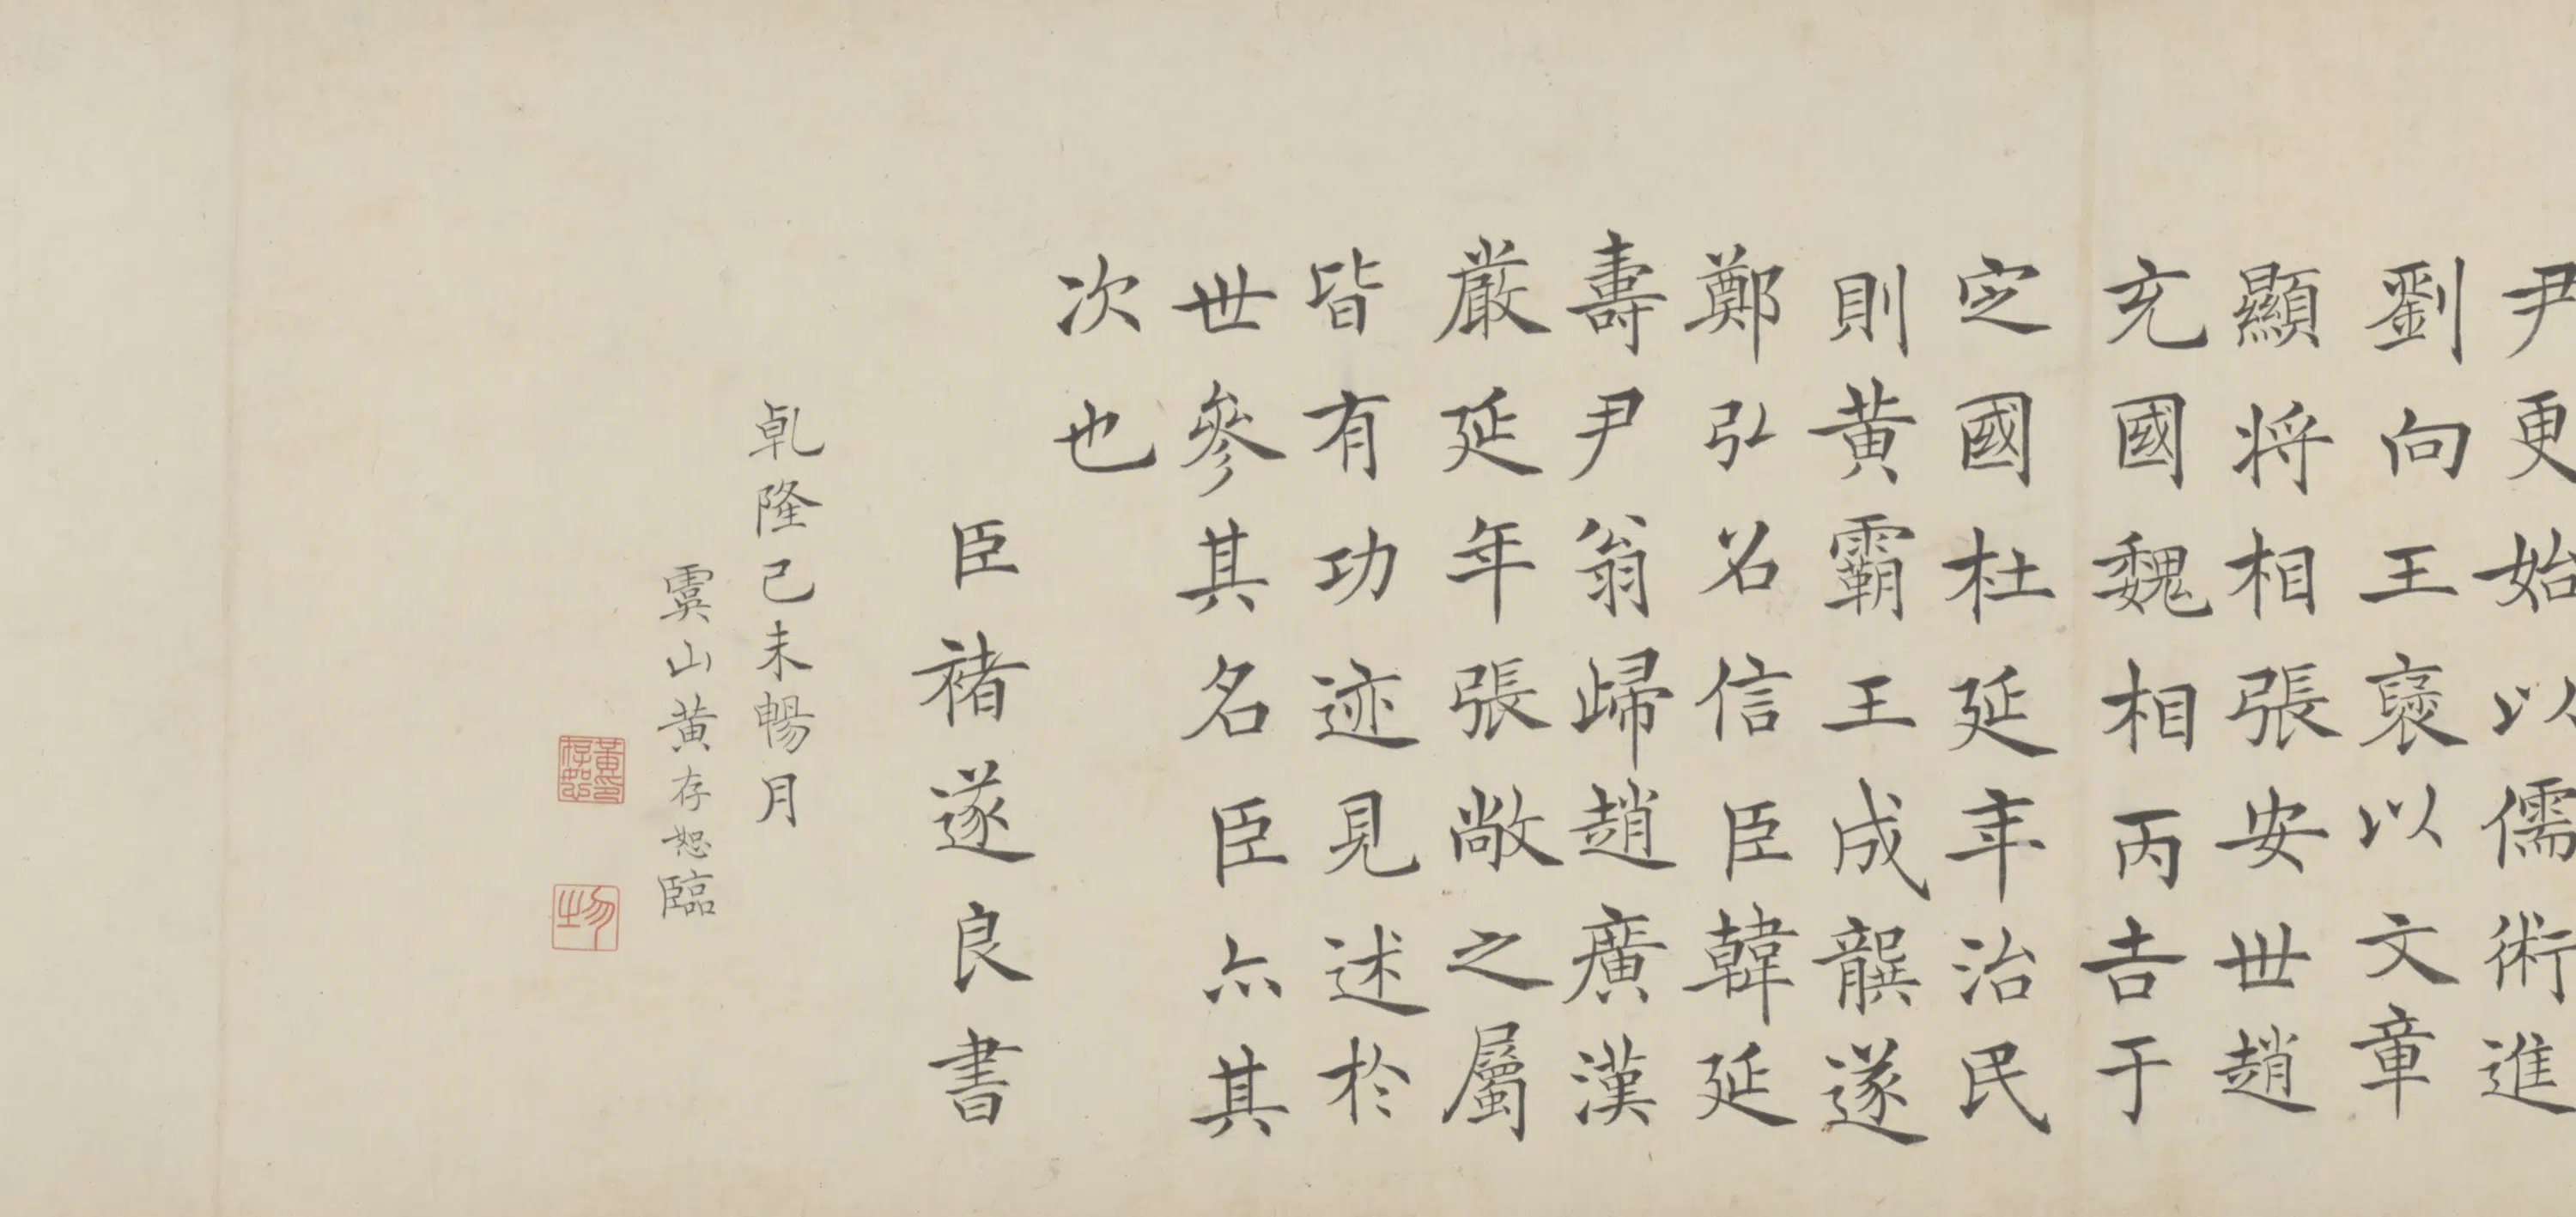 尹更始以儒術進
劉向王襃以文章
顯將相張安世趙
充國魏相丙吉于
定國杜延年治民
則黃霸王成龔遂
鄭弘名信臣韓延
壽尹翁歸趙廣漢
嚴延年張敞之屬
皆有功迹見述於
世參其名臣亦其
次也
臣褚遂良書
乾隆己未暢月
虞山黃存恕臨
黃存恕印